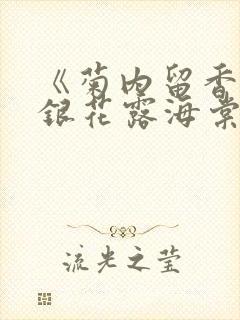 《菊内留香
銀花露海棠
流光之莹